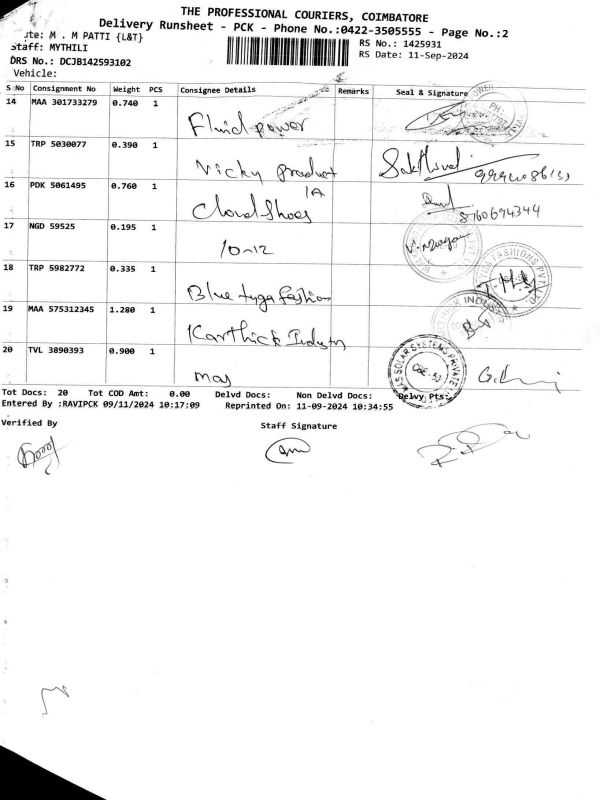 THE PROFESSIONAL COURIERS, COIMBATORE
Delivery Runsheet - PCK - Phone No.:0422-3505555 - Page No.:2
ute: M . M PATTI {L&T}
Staff: MYTHILI
DRS No.: DCJB142593102
Vehicle:
RS No.: 1425931
RS Date: 11-Sep-2024
S No Consignment No Weight PCS Consignee Details Remarks Seal & Signature
14 MAA 301733279 0.740 1 Fluid power
15 TRP 5030077 0.390 1 Nicky product
16 PDK 5061495 0.760 1 Cloud Shoes 8760694344
17 NGD 59525 0.195 1 10-12
18 TRP 5982772 0.335 1 Blue tyga fashion
19 MAA 575312345 1.280 1 Karthick Industry
20 TVL 3890393 0.900 1 mas
MAS SOLAR SYSTEMS PRIVATE
Tot Docs: 20 Tot COD Amt: 0.00 Delvd Docs: Non Delvd Docs: Delvy Pts:
Entered By :RAVIPCK 09/11/2024 10:17:09 Reprinted On: 11-09-2024 10:34:55
Verified By Staff Signature